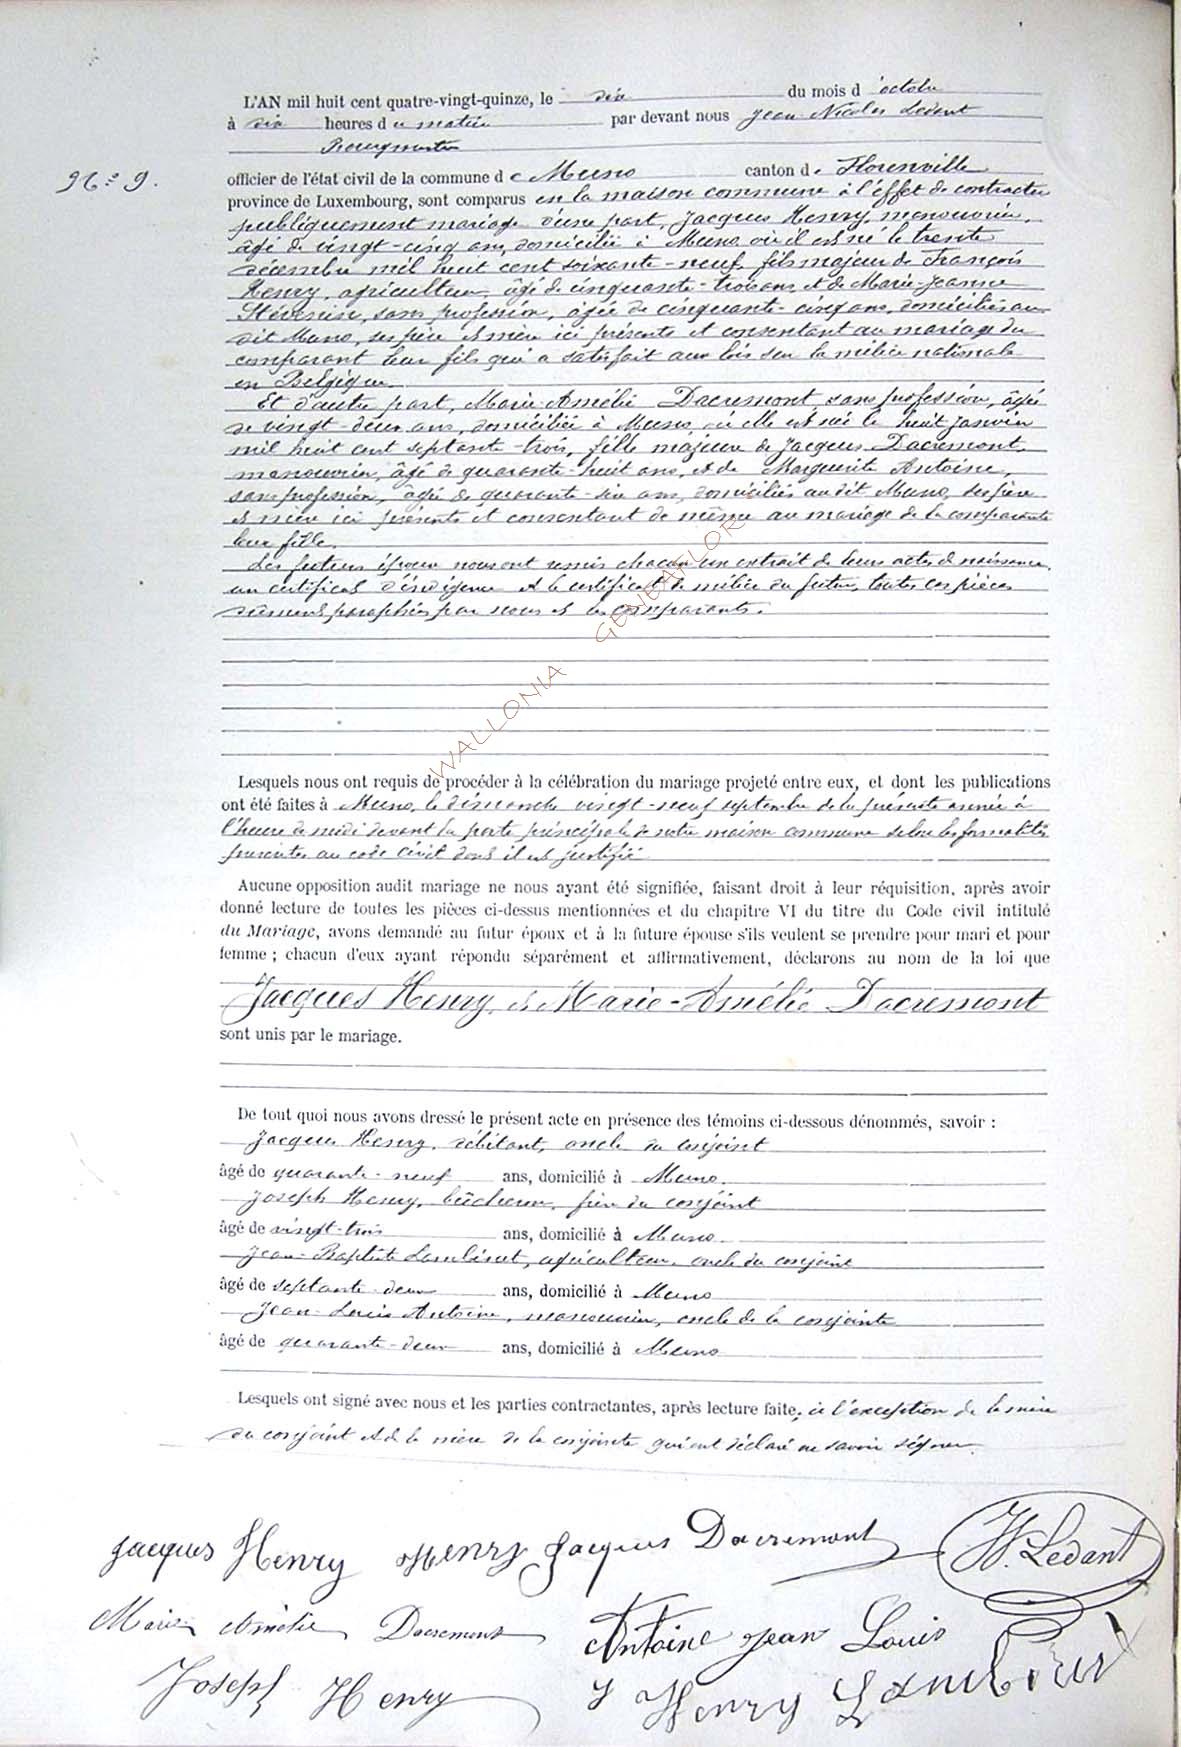 L'AN mil huit cent quatre-vingt-quinze, le dix du mois d'octobre
à dix heures du matin par devant nous Jean Nicolas Ledant
Bourgmestre
N° 9.
officier de l'état civil de la commune de Muno canton de Florenville
province de Luxembourg, sont comparus en la maison commune à l'effet de contracter
publiquement mariage d'une part, Jacques Henry, manouvrier,
âgé de vingt-cinq ans, domicilié à Muno où il est né le trente
décembre mil huit cent soixante-neuf, fils majeur de François
Henry, agriculteur, âgé de cinquante-trois ans et de Marie-Jeanne
sans profession, âgée de cinquante-cinq ans, domiciliés au
dit Muno, ses père et mère ici présents et consentant au mariage du
comparant leur fils qui a satisfait aux lois sur la milice nationale
en Belgique.
Et d'autre part, Marie-Amélie Dacremont, sans profession, âgée
de vingt-deux ans, domiciliée à Muno, où elle est née le huit janvier
mil huit cent septante-trois, fille majeure de Jacques Dacremont,
manouvrier, âgé de quarante-huit ans, et de Marguerite Antoine,
sans profession, âgée de quarante-six ans, domiciliés au dit Muno, ses père
et mère ici présents et consentant de même au mariage de la comparante
leur fille.
Les futurs époux nous ont remis chacun un extrait de leurs actes de naissance,
un certificat d'indigence et le certificat de milice du futur, toutes ces pièces
dûment paraphées par nous et les comparants.
Lesquels nous ont requis de procéder à la célébration du mariage projeté entre eux, et dont les publications
ont été faites à Muno, le dimanche vingt-neuf septembre de la présente année à
l'heure de midi devant la porte principale de notre maison commune selon les formalités
prescrites au code civil dont il est justifié
Aucune opposition audit mariage ne nous ayant été signifiée, faisant droit à leur réquisition, après avoir
donné lecture de toutes les pièces ci-dessus mentionnées et du chapitre VI du titre du Code civil intitulé
du Mariage, avons demandé au futur époux et à la future épouse s'ils veulent se prendre pour mari et pour
femme ; chacun d'eux ayant répondu séparément et affirmativement, déclarons au nom de la loi que
Jacques Henry et Marie-Amélie Dacremont
sont unis par le mariage.
De tout quoi nous avons dressé le présent acte en présence des témoins ci-dessous dénommés, savoir :
Jacques Henry, débitant, oncle du conjoint
âgé de quarante-neuf ans, domicilié à Muno.
Joseph Henry, bûcheron, frère du conjoint
âgé de vingt-trois ans, domicilié à Muno.
Jean-Baptiste Lambinet, agriculteur, oncle du conjoint
âgé de septante-deux ans, domicilié à Muno
Jean-Louis Antoine, manouvrier, oncle de la conjointe
âgé de quarante-deux ans, domicilié à Muno
Lesquels ont signé avec nous et les parties contractantes, après lecture faite, à l'exception de la mère
du conjoint et de la mère de la conjointe qui ont déclaré ne savoir signer.
Jacques Henry Henry Jacques Dacremont N. Ledant
Marie Amélie Dacremont Antoine Jean Louis
Joseph Henry J Henry Lambinet
WALLONIA GENEAFLOR